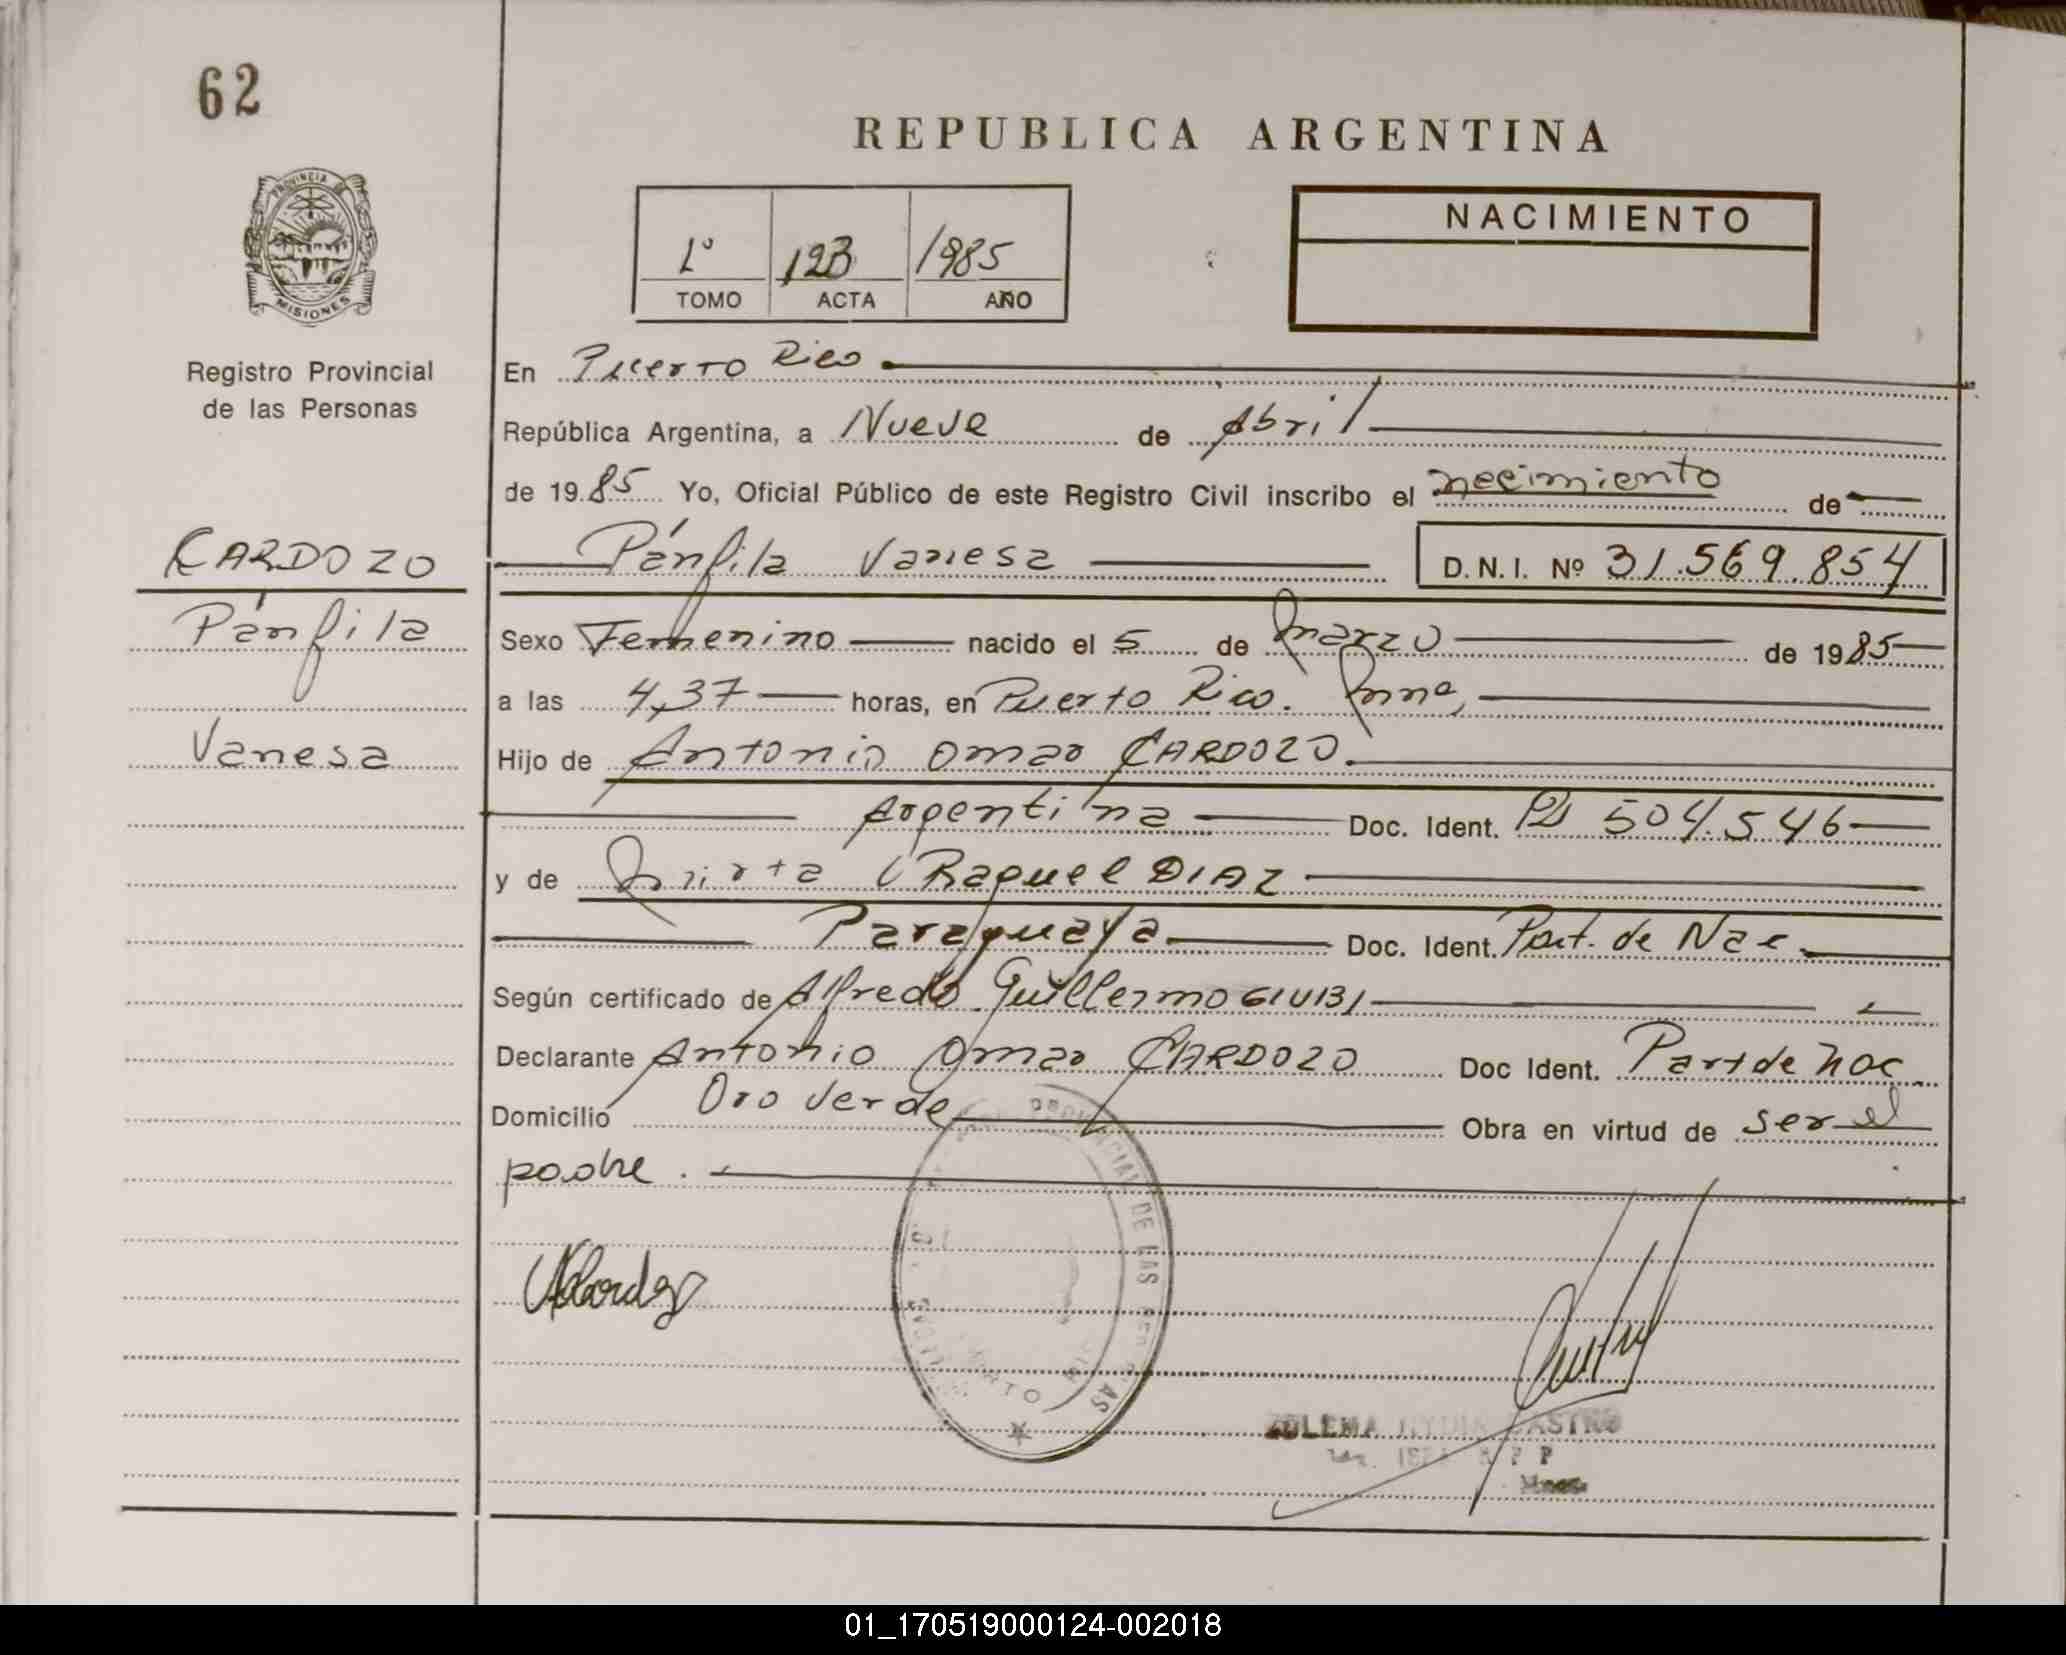 62
REPUBLICA ARGENTINA
PROVINCIA DE
MISIONES
Registro Provincial
de las Personas
1º 123 1985
TOMO ACTA AÑO
NACIMIENTO
En Puerto Rico
República Argentina, a Nueve de Abril
de 1985 Yo, Oficial Público de este Registro Civil inscribo el necimiento de
CARDOZO
Pánfila
Vanesa
Pánfila Vanesa D.N.I. Nº 31.569.854
Sexo Femenino nacido el 5 de marzo de 1985
a las 4,37 horas, en Puerto Rico. Mnes,
Hijo de Antonio Omar CARDOZO.
Argentina Doc. Ident. 504.546
y de Mirta Raquel DIAZ
Paraguaya Doc. Ident. Part. de Nac.
Según certificado de Alfredo Guillermo GIUBI
Declarante Antonio Omar CARDOZO Doc Ident. Part de nac.
Domicilio Oro Verde Obra en virtud de ser el
padre.
PROVINCIAL DE LAS PERSONAS
ZULEMA NYDIA CASTRO
01_170519000124-002018